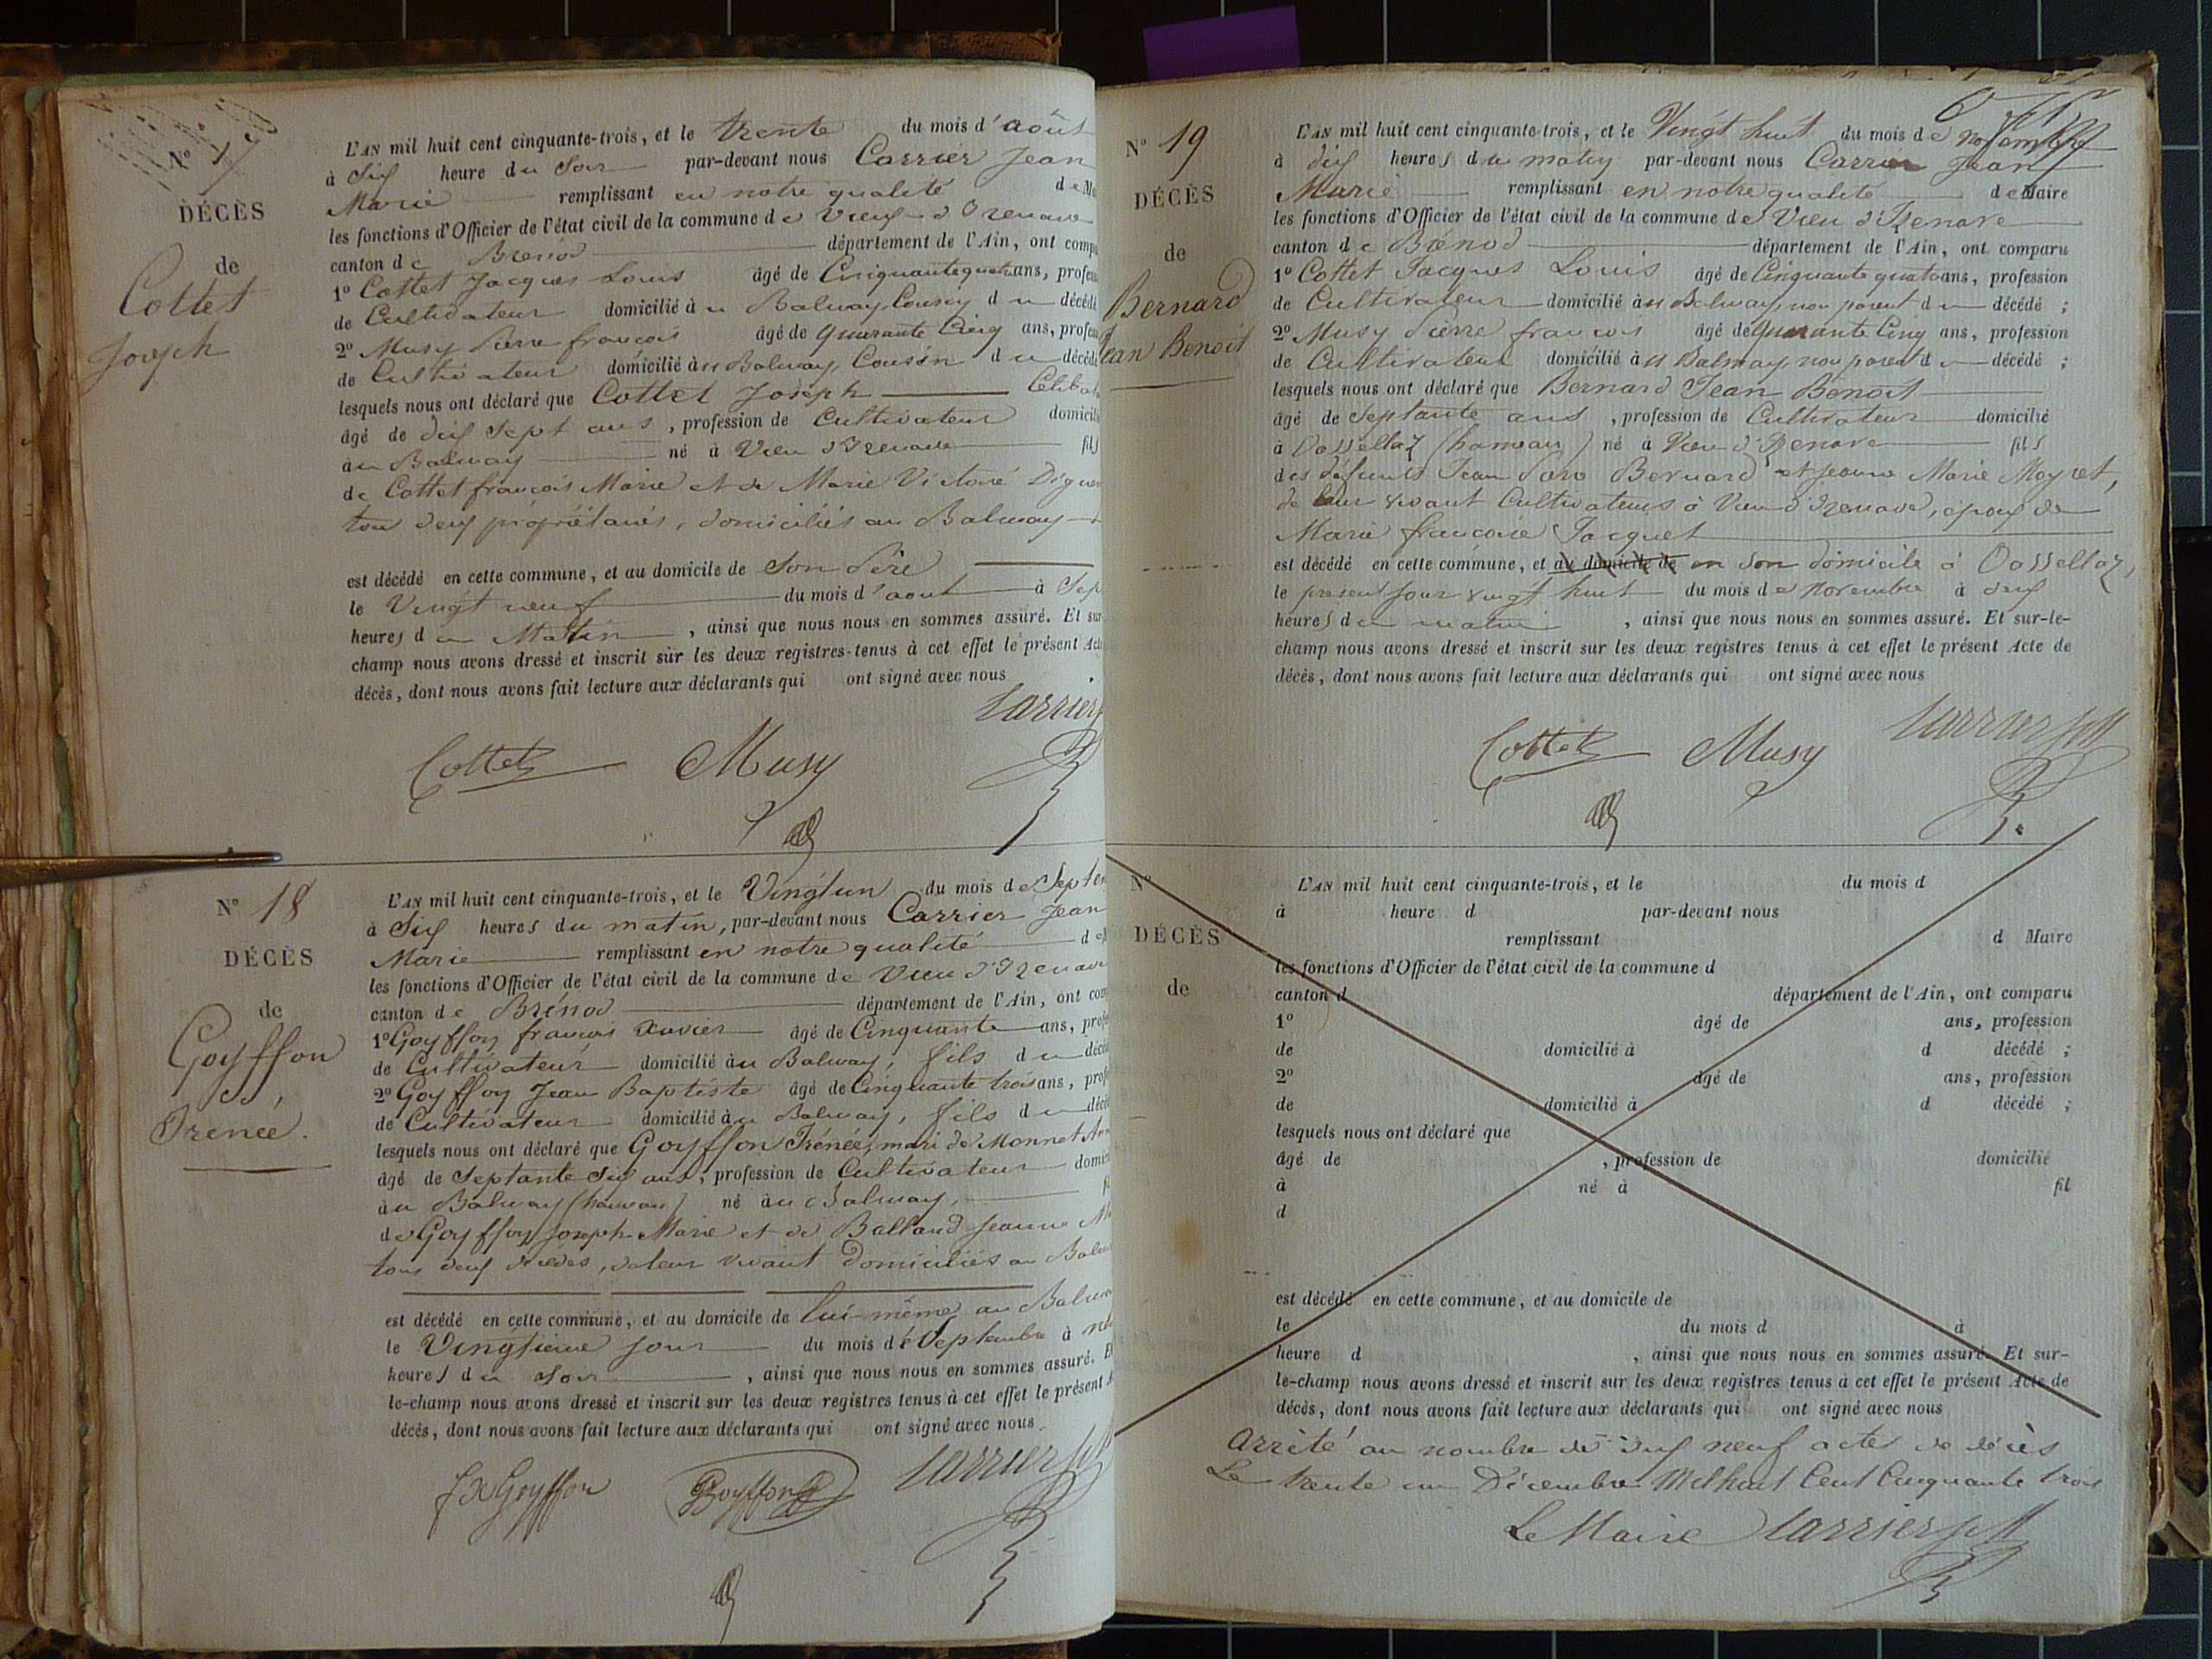 N° 17
DÉCÈS
de
Cottet
Joseph
L'AN mil huit cent cinquante-trois, et le trente du mois d'août
à six heure du Soir par-devant nous Carrier Jean
Marie remplissant en notre qualité de
les fonctions d'Officier de l'état civil de la commune de Vieu d'Izenave
canton de Brénod département de l'Ain, ont
1° Cottet Jacques Louis âgé de Cinquante quatre ans,
de Cultivateur domicilié au Balmay, Cousin du décédé
2° Musy Pierre françois âgé de quarante Cinq ans,
de Cultivateur domicilié au Balmay, Cousin du décédé
lesquels nous ont déclaré que Cottet Joseph
âgé de dix sept ans, profession de Cultivateur
au Balmay né à Vieu d'Izenave fils
de Cottet françois Marie et de Marie Victoire
tous deux propriétaires, domiciliés au Balmay
est décédé en cette commune, et au domicile de Son Père
le Vingt neuf du mois d'aout à
heures du Matin, ainsi que nous nous en sommes assuré. Et
champ nous avons dressé et inscrit sur les deux registres tenus à cet effet le présent
décès, dont nous avons fait lecture aux déclarants qui ont signé avec nous
Carrier
Cottet Musy
N° 18
DÉCÈS
de
Goyffon
Irénée.
L'AN mil huit cent cinquante-trois, et le Vingt un du mois de
à Six heures du matin, par-devant nous Carrier Jean
Marie remplissant en notre qualité
les fonctions d'Officier de l'état civil de la commune de Vieu d'Izenave
canton de Brénod département de l'Ain, ont
1° Goyffon françois Xavier âgé de Cinquante ans,
de Cultivateur domicilié au Balmay, fils du
2° Goyffon Jean Baptiste âgé de Cinquante trois ans,
de Cultivateur domicilié au Balmay, fils du
lesquels nous ont déclaré que Goyffon Irénée, mari de Monnet
âgé de Septante Six ans, profession de Cultivateur
au Balmay (hameau) né au Balmay,
de Goyffon Joseph-Marie et de Balland Jeanne
tous deux décédés, de leur vivant domiciliés au
est décédé en cette commune, et au domicile de lui-même au
le Vingtième jour du mois de Septembre à
heures du Soir, ainsi que nous nous en sommes assuré.
le-champ nous avons dressé et inscrit sur les deux registres tenus à cet effet le présent
décès, dont nous avons fait lecture aux déclarants qui ont signé avec nous
fx Goyffon Goyffon Carrier
N° 19
DÉCÈS
de
Bernard
Jean Benoit
L'AN mil huit cent cinquante-trois, et le Vingt huit du mois de novembre
à dix heures du matin par-devant nous Carrier Jean
Marie remplissant en notre qualité de Maire
les fonctions d'Officier de l'état civil de la commune de Vieu d'Izenave
canton de Brénod département de l'Ain, ont comparu
1° Cottet Jacques Louis âgé de Cinquante quatre ans, profession
de Cultivateur domicilié au Balmay, non parent du décédé ;
2° Musy Pierre françois âgé de quarante Cinq ans, profession
de Cultivateur domicilié au Balmay, non parent du décédé ;
lesquels nous ont déclaré que Bernard Jean Benoit
âgé de Septante ans, profession de Cultivateur domicilié
à Oossellaz (hameau) né à Vieu d'Izenave fils
des défunts Jean Bernard et Jeanne Marie Moyret,
de leur vivant Cultivateurs à Vieu d'Izenave, époux de
Marie françoise Jacquet
est décédé en cette commune, et au domicile de en son domicile à Oossellaz,
le présent jour vingt huit du mois de Novembre à deux
heures du matin, ainsi que nous nous en sommes assuré. Et sur-le-
champ nous avons dressé et inscrit sur les deux registres tenus à cet effet le présent Acte de
décès, dont nous avons fait lecture aux déclarants qui ont signé avec nous
Cottet Musy Carrier
N°
DÉCÈS
de
L'AN mil huit cent cinquante-trois, et le du mois d
à heure d par-devant nous
remplissant d Maire
les fonctions d'Officier de l'état civil de la commune d
canton d département de l'Ain, ont comparu
1° âgé de ans, profession
de domicilié à d décédé ;
2° âgé de ans, profession
de domicilié à d décédé ;
lesquels nous ont déclaré que
âgé de , profession de domicilié
à né à fil
d
est décédé en cette commune, et au domicile de
le du mois d à
heure d , ainsi que nous nous en sommes assuré. Et sur-
le-champ nous avons dressé et inscrit sur les deux registres tenus à cet effet le présent Acte de
décès, dont nous avons fait lecture aux déclarants qui ont signé avec nous
Arrêté au nombre de dix neuf actes de décès
Le trente un Décembre Mil huit Cent Cinquante trois
Le Maire Carrier